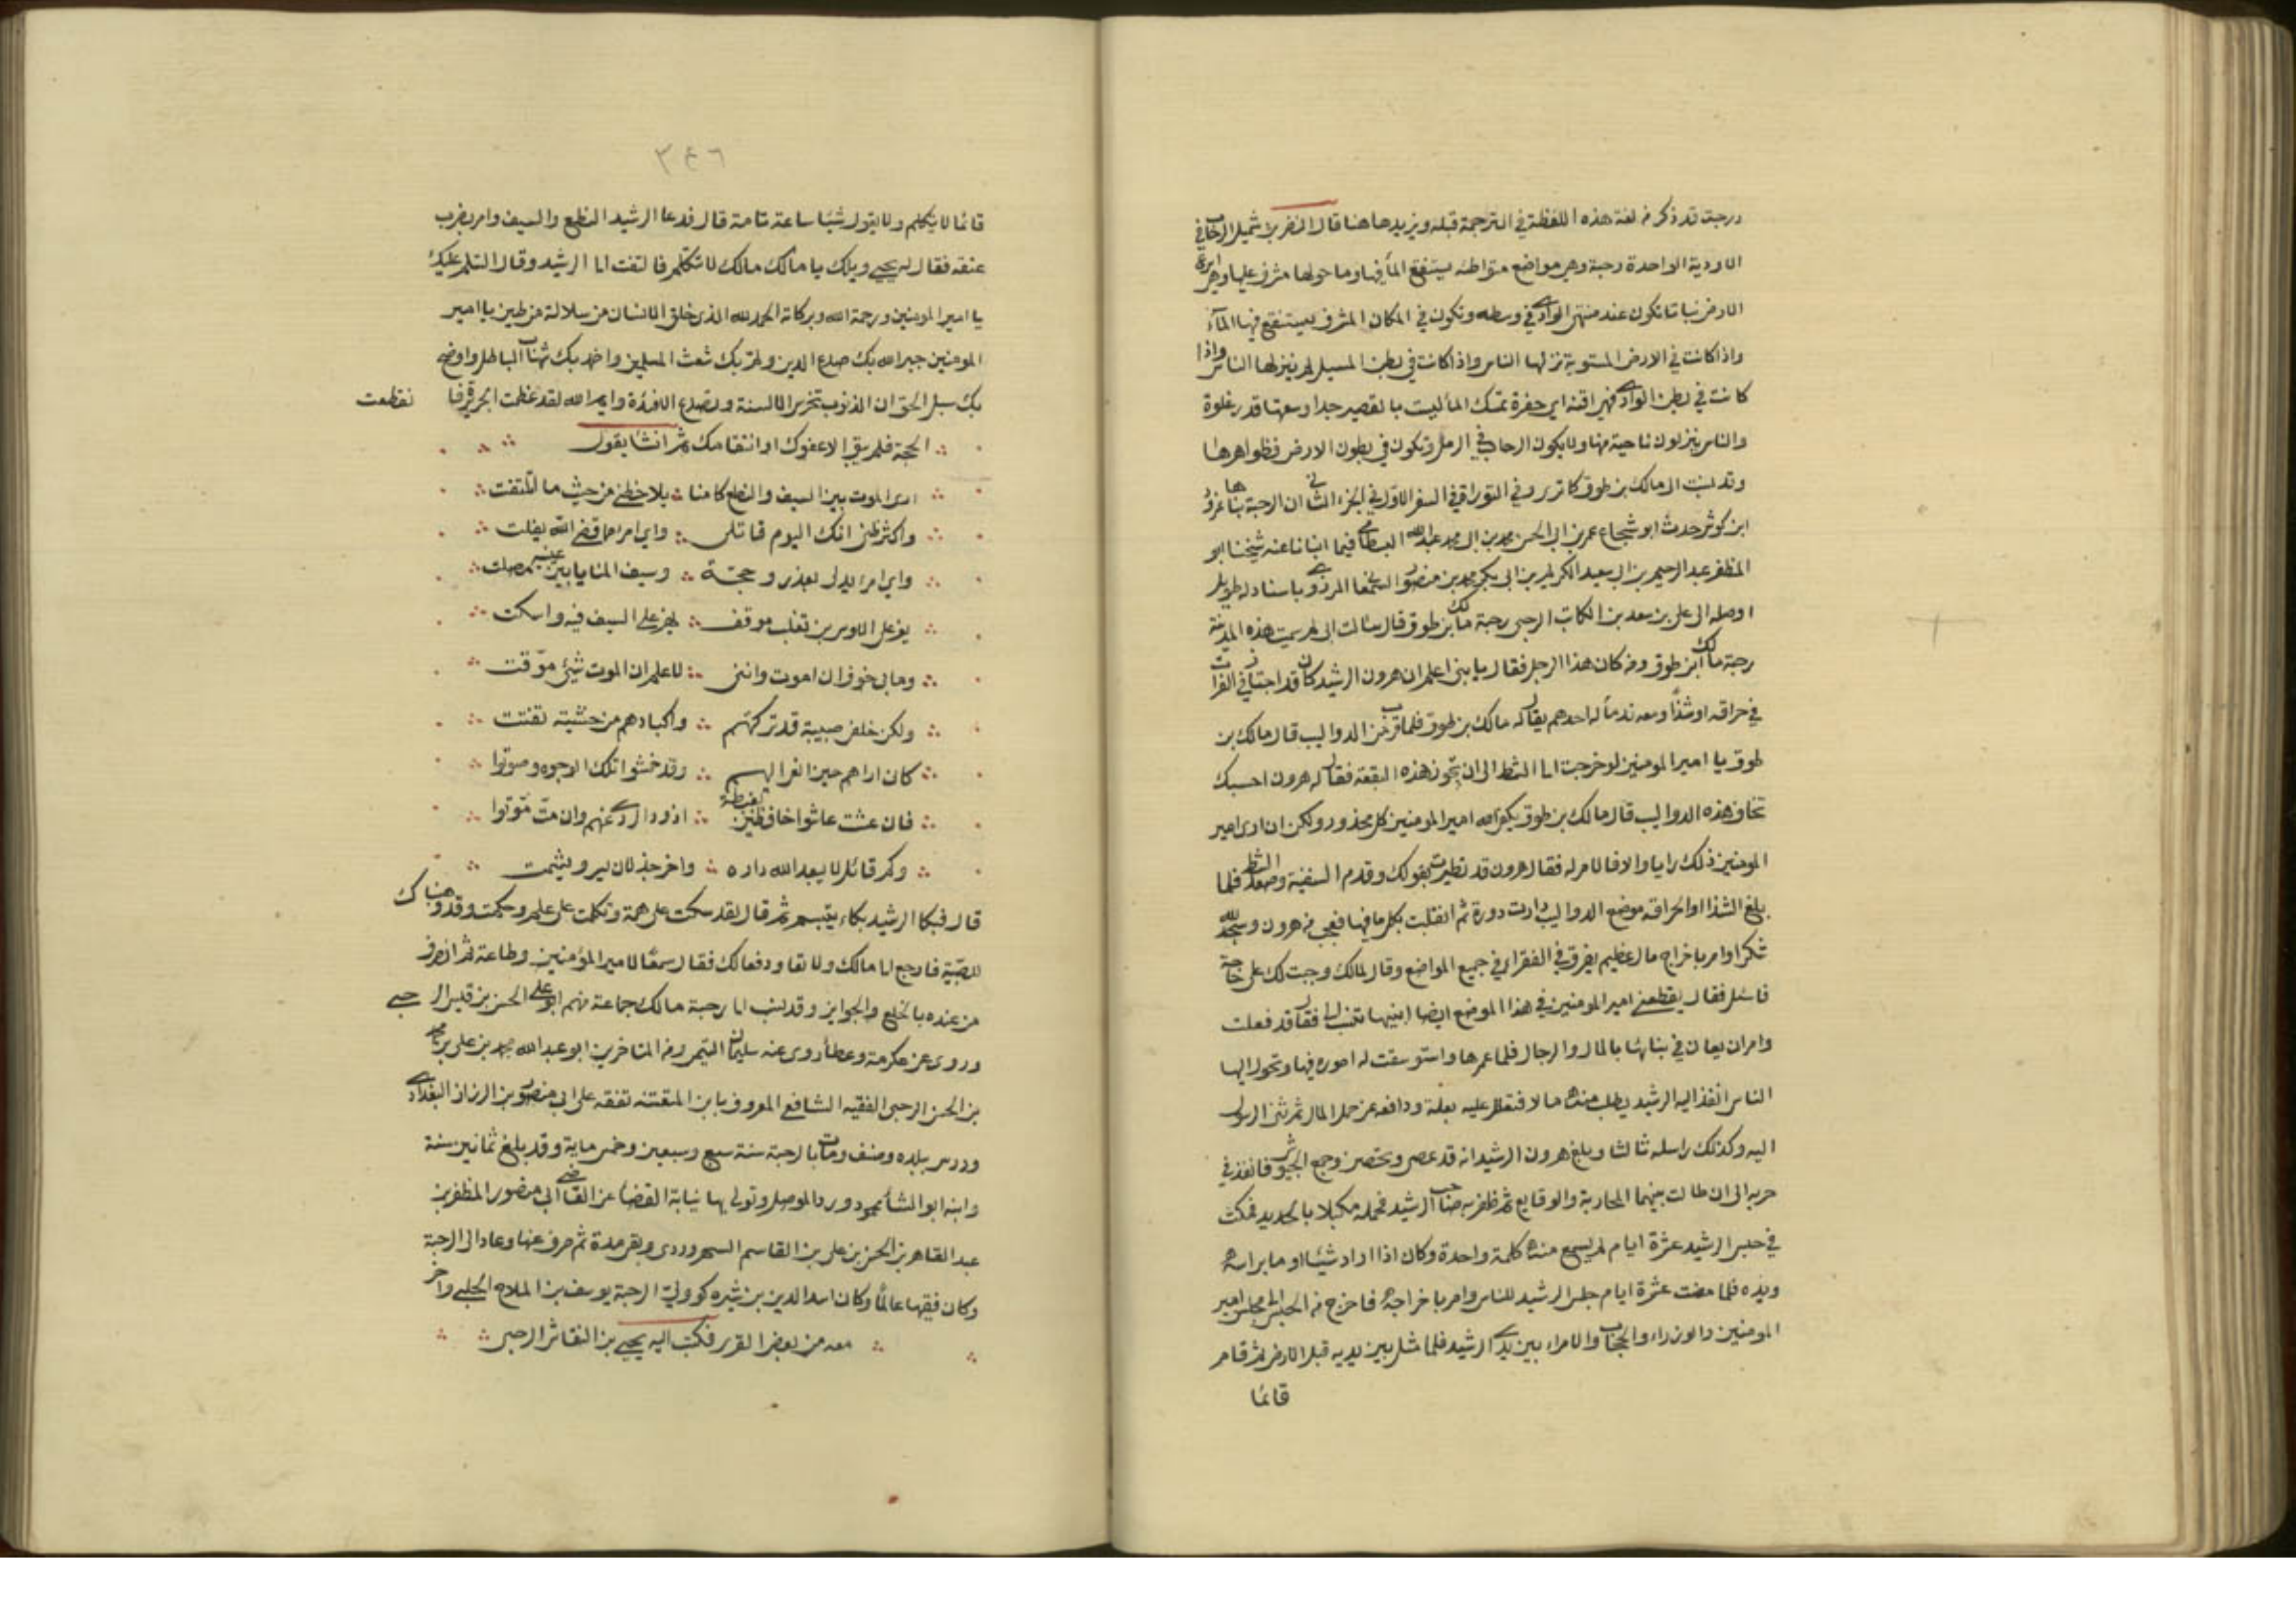 درجت قد ذكر من لغة هذه اللفظة في الترجمة قبله ونزيدها هنا قال النضر بن شميل الرحاب في
الاودية الواحدة رحبة وهي مواضع متواطئة يستنقع الماء فيها وما حولها مشرف عليها وهي اسرع
الارض نباتا تكون عند منتهى الوادي في وسطه وتكون في المكان المشرف يستنقع فيها الماء
واذا كانت في الارض المستوية نزلها الناس واذا كانت في بطن المسيل لم ينزلها الناس واذا
كانت في بطن الوادي فهي اقنة اي حفرة تمسك الماء ليست بالقصير جدا وسعتها قدر غلوة
والناس ينزلون ناحية منها ولا يكون الرحاب في الرمل وتكون في بطون الارض فظواهرها
وقد نسبت الى مالك بن طوق كما ترى وفي التوراة في السفر الاول في الجزء الثاني ان الرحبة بناها نمرود
ابن كوش حدث ابو شجاع عمر بن ابي الحسن محمد بن ابي محمد عبد الله البسطامي فيما انبانا عنه شيخنا ابو
المظفر عبد الرحيم بن ابي سعيد الكريم بن ابي بكر محمد بن منصور السمعاني المروزي باسناد له طويل
اوصله الى علي بن سعد بن الكاتب الرحبي رحبة مالك بن طوق قال سالت ابي لم سميت هذه المدينة
رحبة مالك ابن طوق ومن كان هذا الرجل فقال يا بني اعلم ان هرون الرشيد كان قد اجتاز في الفرات
في حراقة او شذاً ومعه ندماً له احدهم يقال له مالك بن طوق فلما قرب من الدواليب قال مالك بن
طوق يا امير المومنين لو خرجت الى الشط الى ان تجوز هذه البقعة فقال له هرون احسبك
تخاف هذه الدواليب قال مالك بن طوق يكفي الله امير المومنين كل محذور ولكن ان راى امير
المومنين ذلك رايا والا فالامر له فقال هرون قد تطيرت بقولك وقدم السفينة وصعد الشط فلما
بلغ الشذا او الحراقه موضع الدواليب دارت دورة ثم انقلبت بكل ما فيها فعجب من هرون وسجد لله
شكرا وامر باخراج مال عظيم يفرق في الفقراء في جميع المواضع وقال لمالك وجبت لك علي حاجة
فاسئل فقال يقطعني امير المومنين في هذا الموضع ارضا ابنيها تنسب الي فقال قد فعلت
وامر ان يعان في بنائها بالمال والرجال فلما عمرها واستوسقت له اموره فيها وتحول اليها
الناس انفذ اليه الرشيد يطلب منه مالا فتعلل عليه بعلة ودافعه عن حمل المال ثم ثنى الرسول
اليه وكذلك راسله ثالثا وبلغ هرون الرشيد انه قد عصى وتحصن وجمع الجيوش فانفذ في
حربه الى ان طالت بينهما المحاربة والوقايع ثم ظفر به صاحب الرشيد فحمله مكبلا بالحديد فمكث
في حبس الرشيد عشرة ايام لم يسمع منه كلمة واحدة وكان اذا اراد شيئا اوما براسه
ويده فلما مضت عشرة ايام جلس الرشيد للناس وامر باخراجه فاخرج من الحبس الى مجلس امير
المومنين والوزراء والحجاب والامراء بين يدي الرشيد فلما مثل بين يديه قبل الارض ثم قام
قائما
٣٤٦
قائما لا يتكلم ولا يقول شيئا ساعة تامة قال فدعا الرشيد النطع والسيف وامر بضرب
عنقه فقال له يحيى ويلك يا مالك مالك لا تتكلم فالتفت الى الرشيد وقال السلم عليك
يا امير المومنين ورحمة الله وبركاته الحمد لله الذي خلق الانسان من سلالة من طين يا امير
المومنين جبر الله بك صدع الدين ولم بك شعث المسلمين واخمد بك شهاب الباطل واوضح
بك سبل الحق ان الذنوب تخرس الالسنة وتصدع الافئدة وايم الله لقد عظمت الجريرة فا نقطعت
الحجة فلم يبق الا عفوك او انتقامك ثم انشا يقول
ارى الموت بين السيف والنطع كامنا يلاحظني من حيث ما اتلفت
واكثر ظني انك اليوم قاتلي واي امرء مما قضى الله يفلت
واي امرء يدلي بعذر وحجة وسيف المنايا بين عينيه مصلت
يعز على الاوس بن تغلب موقف يهز على السيف فيه واسكت
وما بي خوف ان اموت وانني لاعلم ان الموت شيئ موقت
ولكن خلفي صبية قد تركتهم واكبادهم من خشية تفتت
كان اراهم حين انعى اليهم وقد خمشوا تلك الوجوه وصوتوا
فان عشت عاشوا خافظين بغبطة اذود الردى عنهم وان مت موتوا
وكم قائل لا يبعد الله داره واخر جذلان يسر ويشمت
قال فبكا الرشيد بكاء يتبسم ثم قال لقد سكت على همة وتكلمت على علم وحكمة وقد وهبناك
للصبية فارجع الى مالك ولا تعاود فعالك فقال سمعًا لامير المؤمنين وطاعة ثم انصرف
من عنده بالخلع والجوايز وقد نسب الى رحبة مالك جماعة منهم ابو علي الحسن بن قيس الرحبي
وروى عن عكرمة وعطاء روى عنه سليمان التيمي ومن المتاخرين ابو عبد الله محمد بن علي بن محمد
بن الحسن الرحبي الفقيه الشافعي المعروف بابن المتقنه تفقه على ابي منصور بن الرزاز البغدادي
ودرس ببلده وصنف ومات بالرحبة سنة سبع وسبعين وخمس ماية وقد بلغ ثمانين سنة
وابنه ابو الثناء محمود ورد الموصل وتولى بها نيابة القضا عن القاضي ابي منصور المظفر بن
عبد القاهر بن الحسن بن علي بن القاسم السهروردي وبقي مدة ثم صرف عنها وعاد الى الرحبة
وكان فقيها عالمًا وكان اسد الدين بن شيركوه ولي الرحبة يوسف بن الملاح الحلبي واخر
معه من بعض القرى فكتب اليه يحيى بن النقاش الرحبي